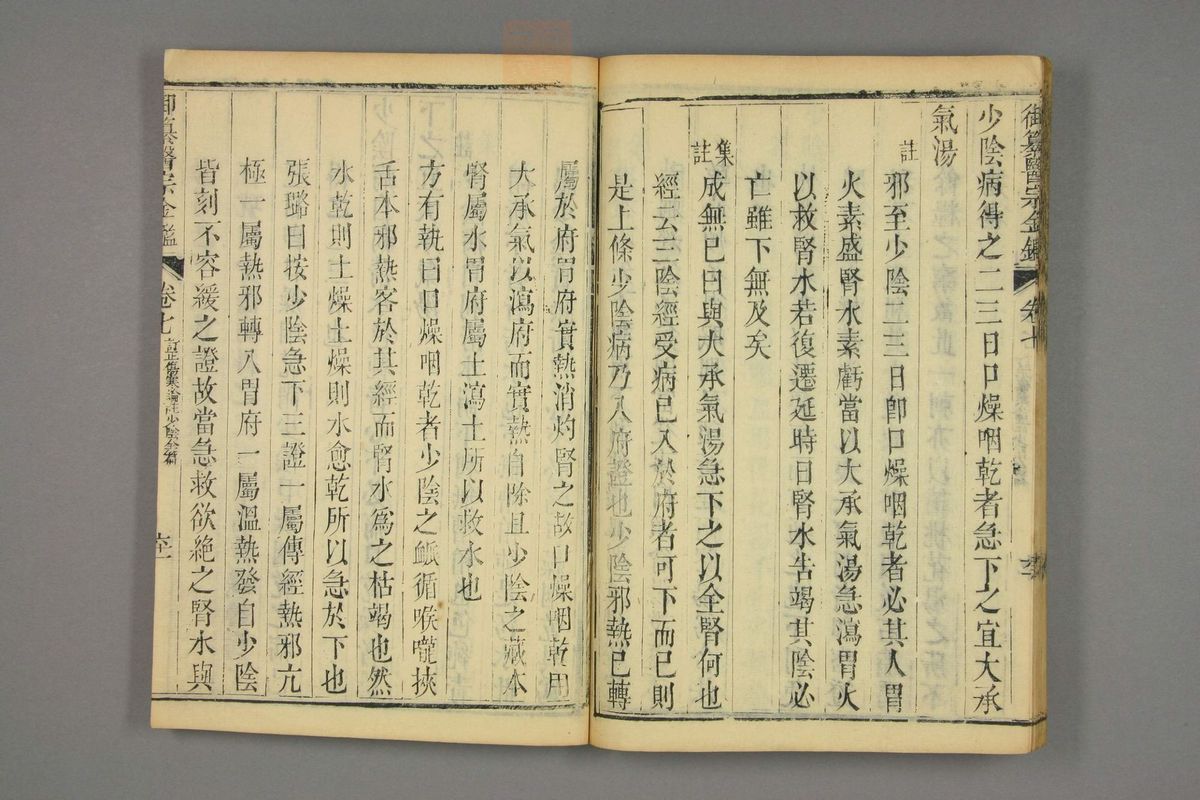 御纂醫宗金鑑 卷七
少陰病得之二三日口燥咽乾者急下之宜大承
氣湯
註
邪至少陰二三日卽口燥咽乾者必其人胃
火素盛腎水素虧當以大承氣湯急瀉胃火
以救腎水若復遷延時日腎水告竭其陰必
亡雖下無及矣
集註
成無已曰與大承氣湯急下之以全腎何也
經云三陰經受病已入於府者可下而已則
是上條少陰病乃入府證也少陰邪熱已轉
屬於府胃府實熱消灼腎之故口燥咽乾用
大承氣以瀉府而實熱自除且少陰之藏本
腎屬水胃府屬土瀉土所以救水也
方有執曰口燥咽乾者少陰之脈循喉嚨挾
舌本邪熱客於其經而腎水爲之枯竭也然
水乾則土燥土燥則水愈乾所以急於下也
張璐曰按少陰急下三證一屬傳經熱邪亢
極一屬熱邪轉入胃府一屬溫熱發自少陰
皆刻不容緩之證故當急救欲絕之腎水與
御纂醫宗金鑑 卷七 訂正傷寒論註少陰全篇